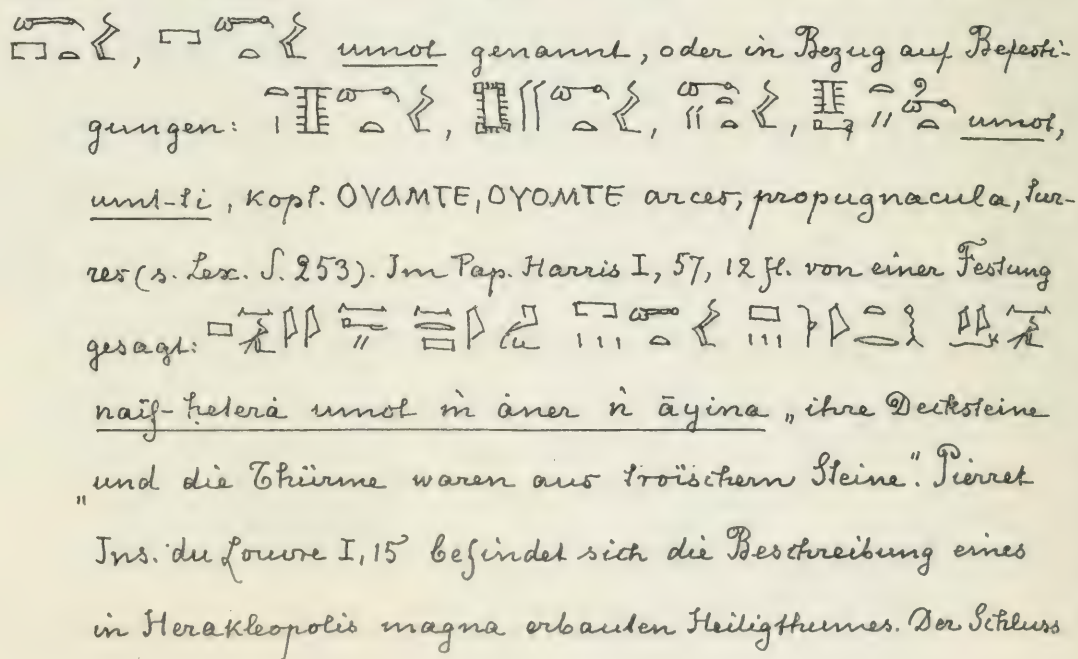 , umot genannt, oder in Bezug auf Befesti-
gungen: , , , umot,
umt-ti, kopt. ΟΥΑΜΤΕ, ΟΥΟΜΤΕ arces, propugnacula, tur-
res (s. Lex. S. 253). Im Pap. Harris I, 57, 12 fl. von einer Festung
gesagt:
naïf-ḥeterà umot m̀ àner ǹ āyina „ihre Decksteine
„und die Thürme waren aus troïschem Steine“. Pierret
Ins. du Louvre I, 15 befindet sich die Beschreibung eines
in Herakleopolis magna erbauten Heiligthumes. Der Schluss